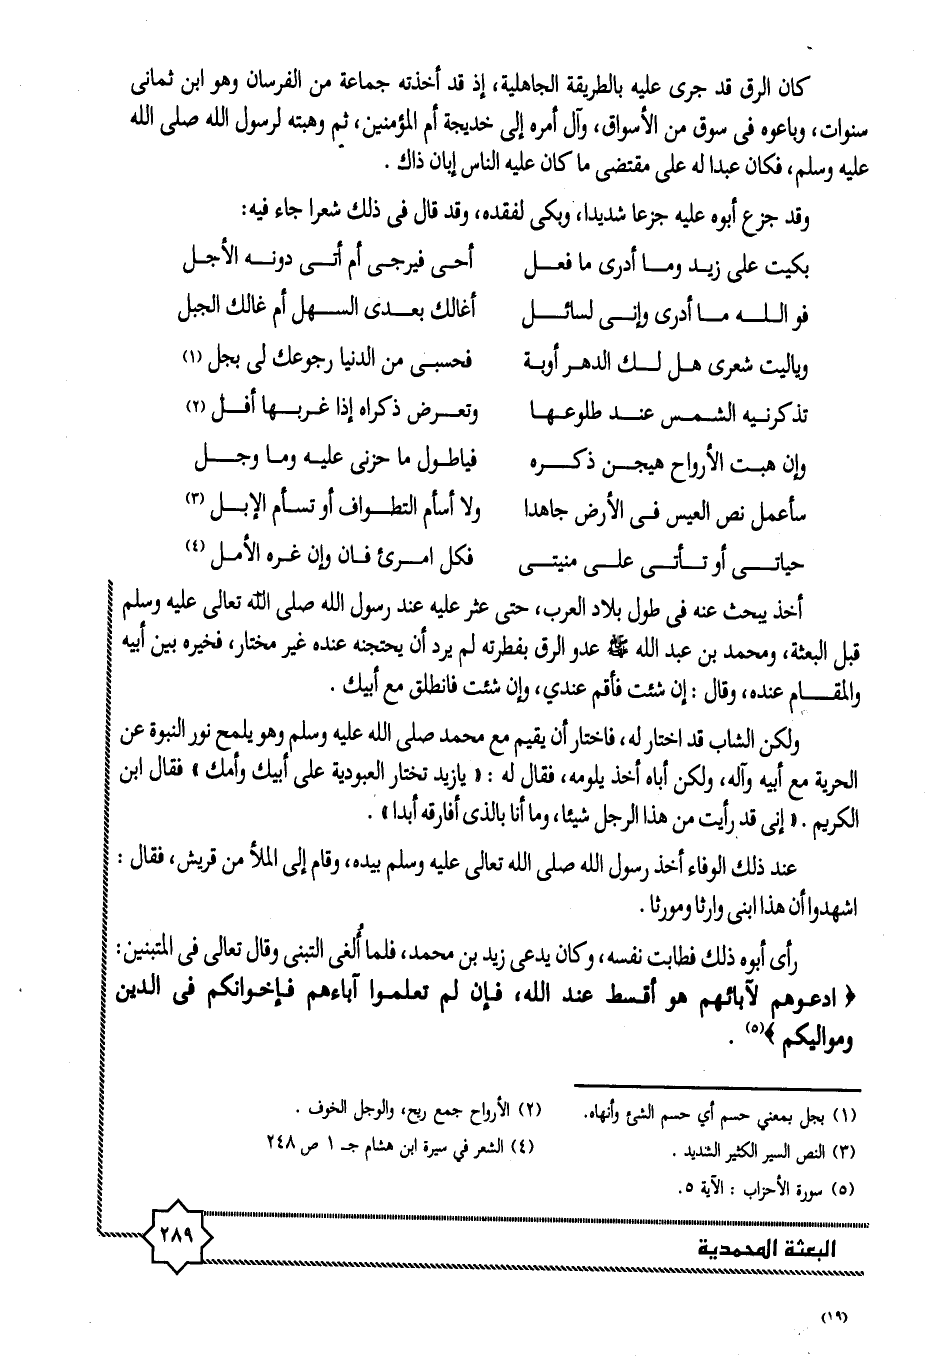 كان الرق قد جرى عليه بالطريقة الجاهلية، إذ قد أخذته جماعة من الفرسان وهو ابن ثمانى
سنوات، وباعوه فى سوق من الأسواق، وآل أمره إلى خديجة أم المؤمنين، ثم وهبته لرسول الله صلى الله
عليه وسلم، فكان عبدا له على مقتضى ما كان عليه الناس إبان ذاك .
وقد جزع أبوه عليه جزعا شديدا، وبكى لفقده، وقد قال فى ذلك شعرا جاء فيه:
بكيت على زيد وما أدرى ما فعل أحى فيرجى أم أتى دونه الأجل
فو الله ما أدرى وإنى لسائل أغالك بعدى السهل أم غالك الجبل
وياليت شعرى هل لك الدهر أوبة فحسبى من الدنيا رجوعك لى بجل (١)
تذكرنيه الشمس عند طلوعها وتعرض ذكراه إذا غربها أفل (٢)
وإن هبت الأرواح هيجن ذكره فياطول ما حزنى عليه وما وجل
سأعمل نص العيس فى الأرض جاهدا ولا أسأم التطواف أو تسأم الإبل (٣)
حياتى أو تأتى على منيتى فكل امرئ فان وإن غره الأمل (٤)
أخذ يبحث عنه فى طول بلاد العرب، حتى عثر عليه عند رسول الله صلى الله تعالى عليه وسلم
قبل البعثة، ومحمد بن عبد الله ﷺ عدو الرق بفطرته لم يرد أن يحتجنه عنده غير مختار، فخيره بين أبيه
والمقام عنده، وقال : إن شئت فأقم عندي، وإن شئت فانطلق مع أبيك .
ولكن الشاب قد اختار له، فاختار أن يقيم مع محمد صلى الله عليه وسلم وهو يلمح نور النبوة عن
الحرية مع أبيه وآله، ولكن أباه أخذ يلومه، فقال له : « يازيد تختار العبودية على أبيك وأمك » فقال ابن
الكريم . « إنى قد رأيت من هذا الرجل شيئا، وما أنا بالذى أفارقه أبدا » .
عند ذلك الوفاء أخذ رسول الله صلى الله تعالى عليه وسلم بيده، وقام إلى الملأ من قريش، فقال :
اشهدوا أن هذا ابنى وارثا ومورثا .
رأى أبوه ذلك فطابت نفسه، وكان يدعى زيد بن محمد، فلما أُلغى التبنى وقال تعالى فى المتبنين:
﴿ ادعوهم لآبائهم هو أقسط عند الله، فإن لم تعلموا آباءهم فإخوانكم فى الدين
ومواليكم ﴾(٥) .
(١) بجل بمعني حسم أي حسم الشئ وأنهاه. (٢) الأرواح جمع ريح، والوجل الخوف .
(٣) النص السير الكثير الشديد . (٤) الشعر في سيرة ابن هشام جـ ١ ص ٢٤٨
(٥) سورة الأحزاب : الآية ٥.
٢٨٩
البعثة المحمدية
(١٩)